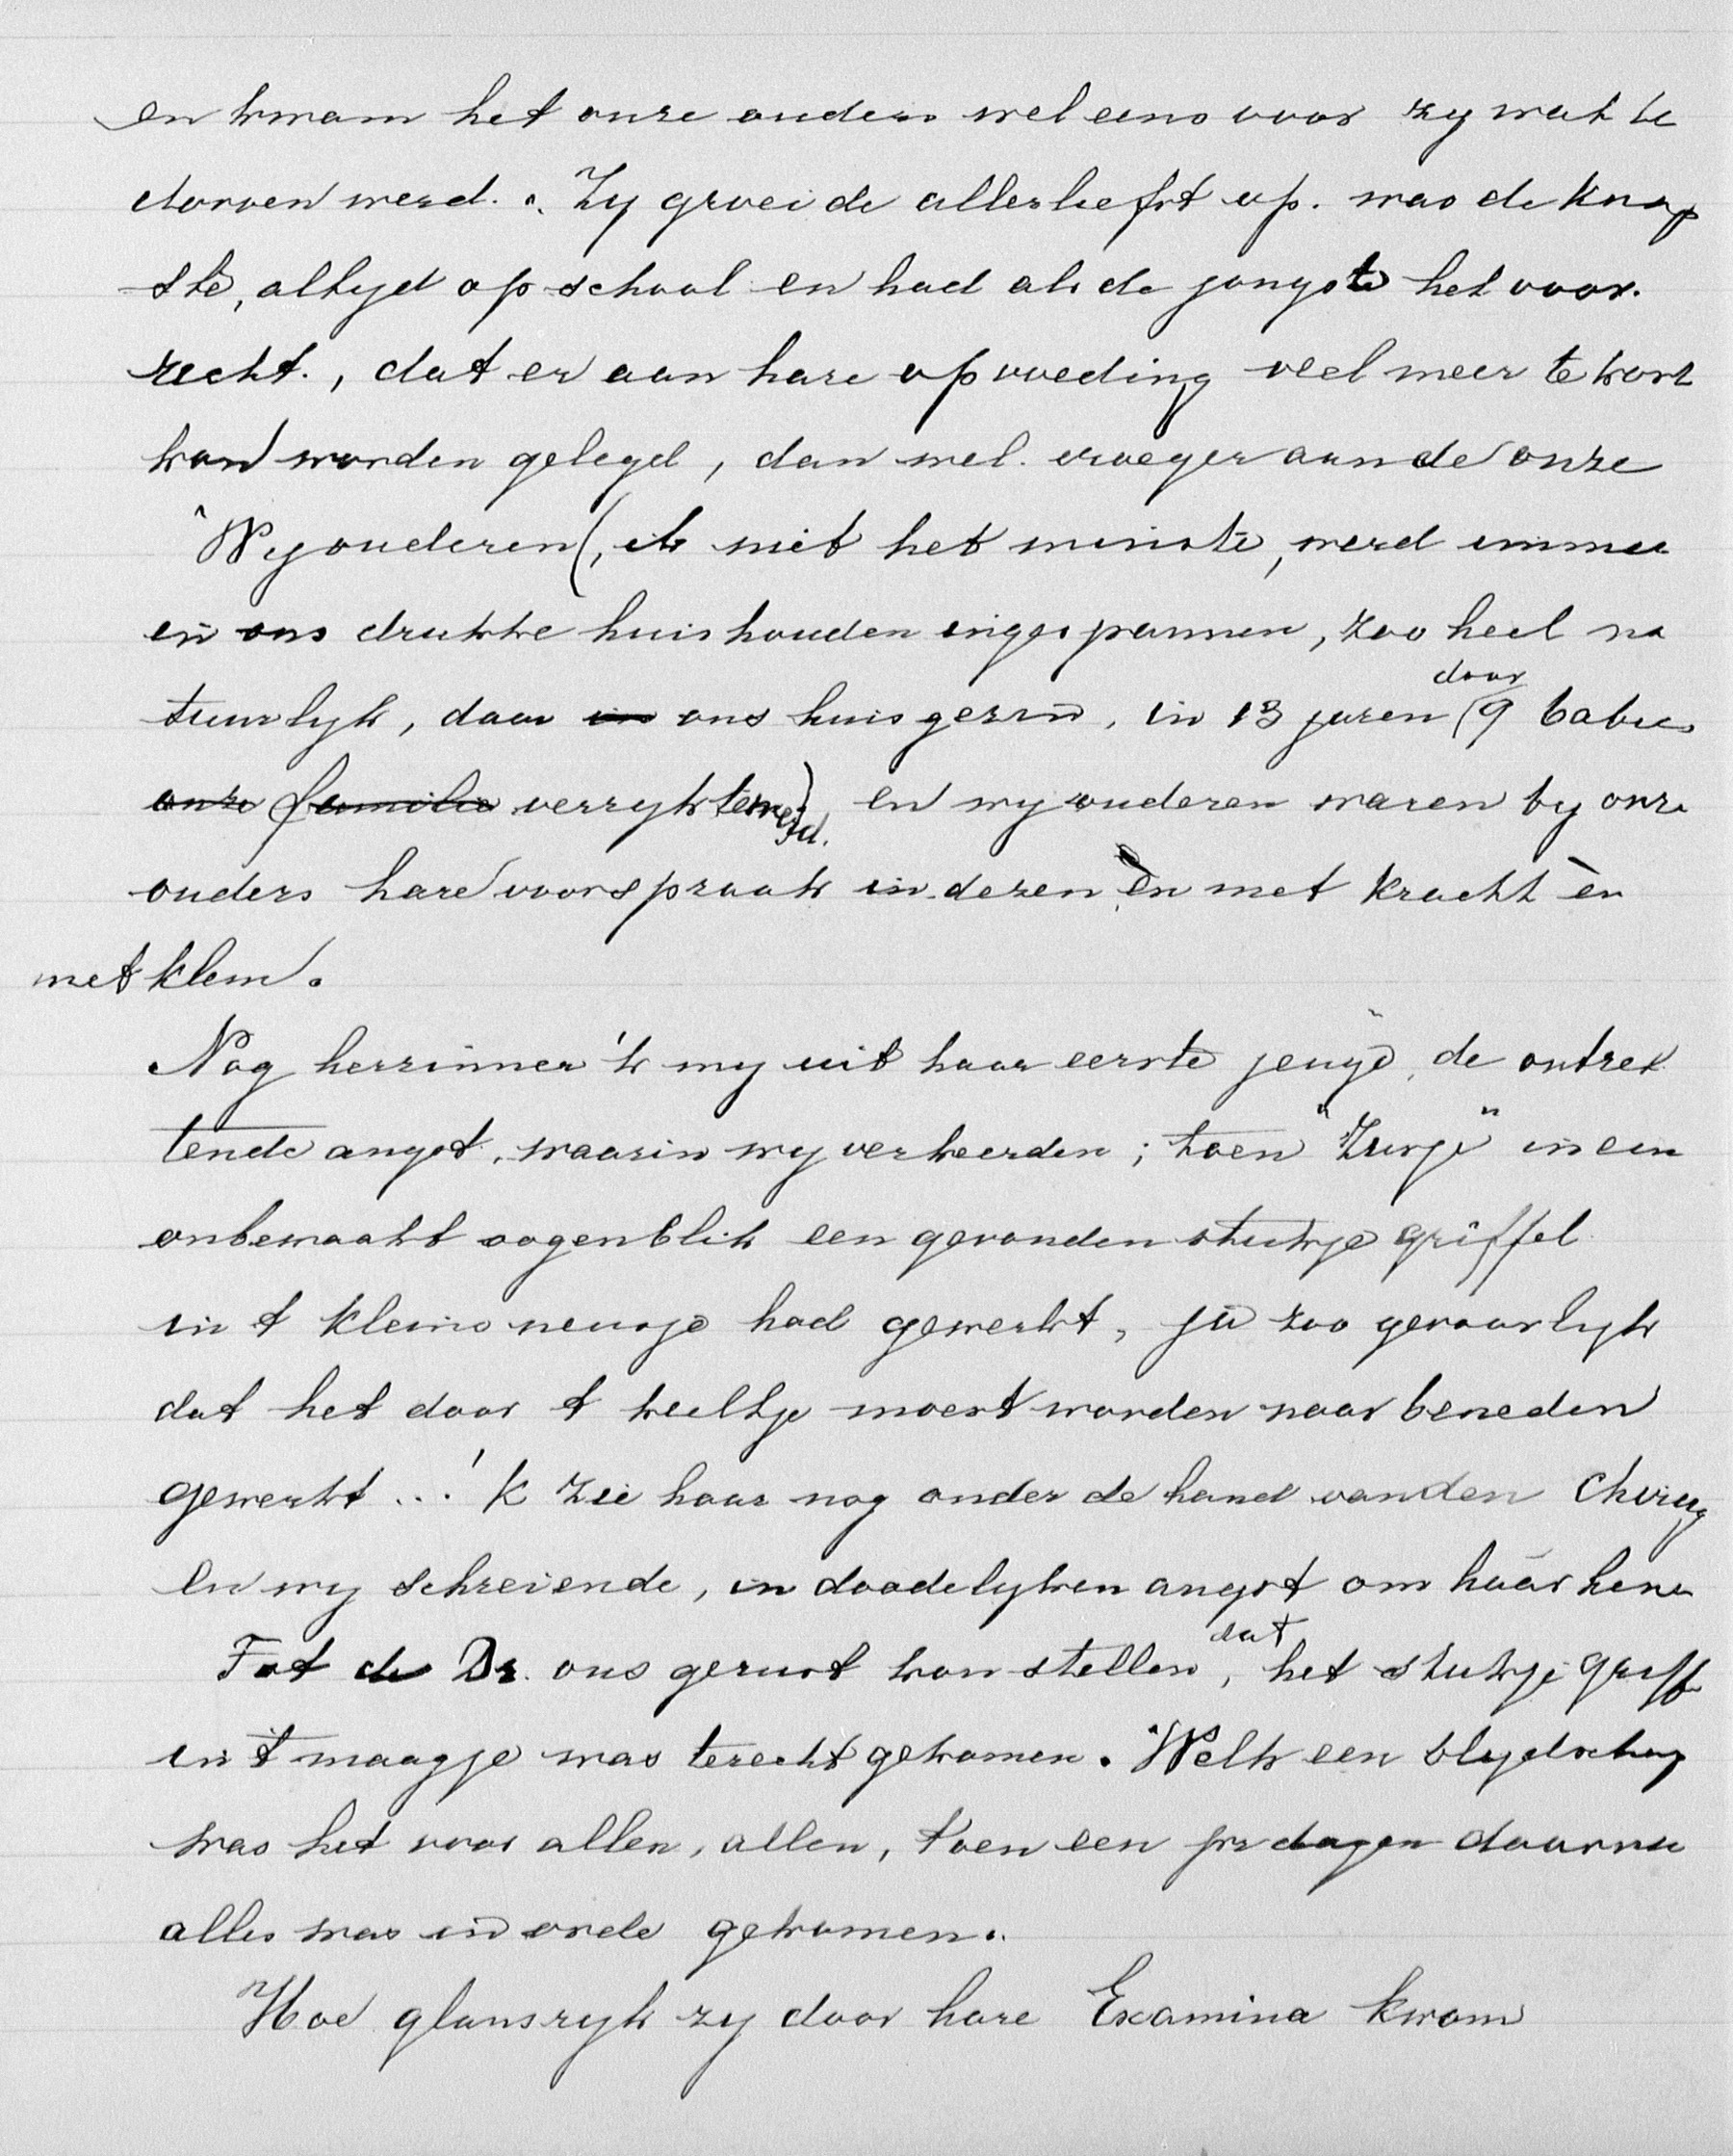 en kwam het onze ouders wel eens voor zy wat be
dorven werd. Zy groeide allerliefst op. was de knap
ste, altyd op school en had als de jongste het voor.
recht., dat er aan hare opvoeding veel meer te kost
kon worden gelegd, dan wel vroeger aan de onze
Wy ouderen (, ik niet het minste, werd immer
in ons drukke huishouden ingespannen, zoo heel na
tuurlyk, daar in ons huisgezin, in 13 jaren door 9 babies
onze familie verrykt werd.) en wy ouderen waren by onze
ouders hare voorspraak in dezen, èn met kracht èn
met klem.
Nog herrinner 'k my uit haar eerste jeugd, de ontzet
tende angst, waarin wy verkeerden; toen "Zusje" in een
onbewaakt oogenblik een gevonden stukje griffel
in 't kleine neusje had gewerkt, ja zoo gevaarlyk
dat het door 't keeltje moest worden naar beneden
gewerkt ... 'k Zie haar nog onder de hand van den Chirurg
en wy schreiende, in doodelyken angst om háár hene
Tot de Dr. ons gerust kon stellen, dat het stukje griff
in 't maagje was terecht gekomen. Welk een blydschap
was het voor allen, allen, toen een pr dagen daarna
alles was in orde gekomen.
Hoe glansryk zy door hare Examina kwam